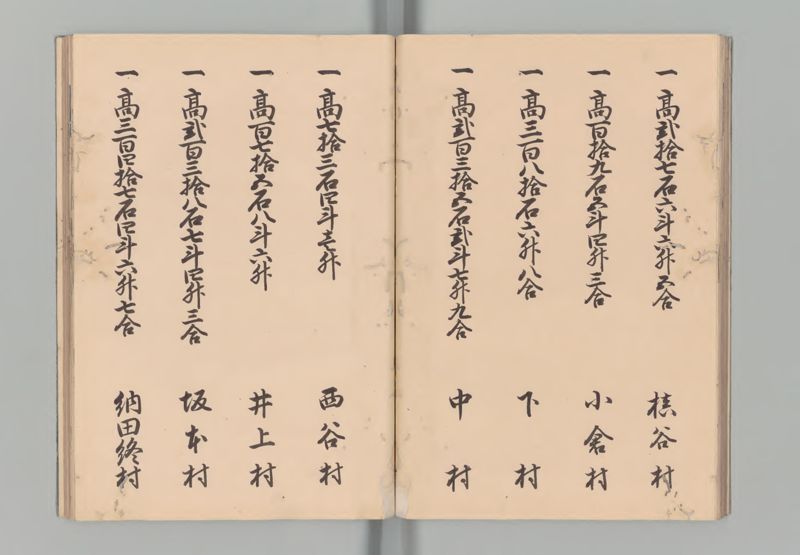 一高弐拾七石六斗六升五合 槙谷村
一高百拾九石五斗四升三合 小倉村
一高三百八拾石六升八合 下村
一高弐百三拾五石弐斗七升九合 中村
一高七拾三石四斗壱升 西谷村
一高百七拾五石八斗六升 井上村
一高弐百三拾八石七斗四升三合 坂本村
一高三百四拾七石四斗六升七合 納田終村